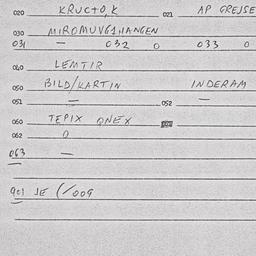 020 KRUCTO,K 021 AP GREJSE
030 MIROMUVG1HANGEN
031 — 032 0 033 0
040 LEMTIR
050 BILD/KARTIN INDERAM
051 = 052 —
060 TEPIX QNEX
062 0
063 —
901 JE (/009